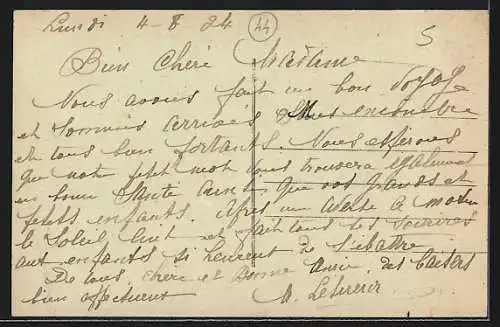 Lundi 4-8 24
44
5
Bien Chère Madame
Nous avons fait un bon Voyage
et sommes arrivés sans encombre
et tous bien portants. Nous espérons
que notre petit mot vous trouvera également
en bonne Santé ainsi que vos grands et
petits enfants. Après une averse à
le Soleil luit et fait tous les sourires
aux enfants si heureux de s'ébattre
De tous, chère et bonne amie, des baisers
bien affectueux A.